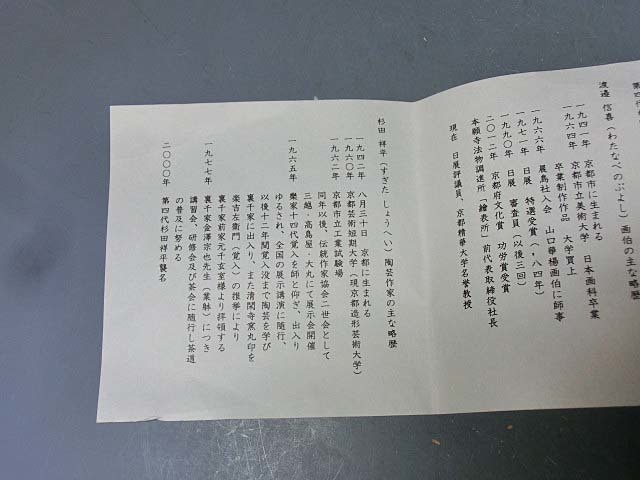 渡邊 信喜（わたなべのぶよし）画伯の主な略歴
一九四一年 京都市に生まれる
一九六四年 京都市立美術大学 日本画科卒業
卒業制作作品 大学買上
一九六六年 晨鳥社入会 山口華楊画伯に師事
一九七一年 日展 特選受賞（'八四年）
一九九〇年 日展 審査員（以後二回）
二〇一二年 京都府文化賞 功労賞受賞
本願寺法物調進所（繪表所）前代表取締役社長
現在 日展評議員、京都精華大学名誉教授
杉田 祥平（すぎた しょうへい）陶芸作家の主な略歴
一九四二年 八月三十日 京都に生まれる
一九六〇年 京都芸術短期大学（現京都造形芸術大学）
一九六二年 京都市立工業試験場
同年以後、伝統作家協会二世会として
三越・高島屋・大丸にて展示会開催
一九六五年 樂家十四代覚入を師と仰ぎ、出入り
ゆるされ、全国の展示講演に随行、
以後十二年間覚入没まで陶芸を学び
裏千家に出入り、また清閑寺窯丸印を
楽吉左衛門（覚入）の推挙により
裏千家前家元千玄室様より拝領する
一九七七年 裏千家金澤宗也先生（業躰）につき
講習会、研修会及び茶会に随行し茶道
の普及に努める
二〇〇〇年 第四代杉田祥平襲名